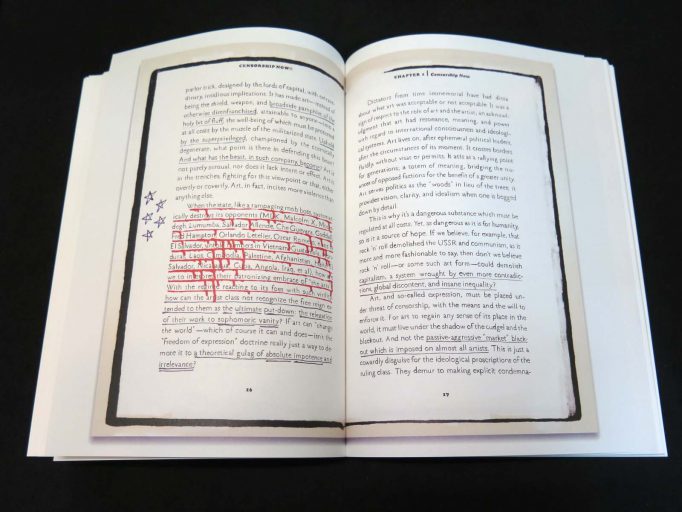 CENSORSHIP NOW!!
parlor trick, designed by the lords of capital, with
insidious implications. It has made art—instead of
being the shield, weapon, and broadside pamphlet of the
otherwise disenfranchised, attainable to anyone—
holy bit of fluff, the well-being of which must be protected
at all costs by the muscle of the militarized state. Lauded
by the superprivileged, championed by the
degenerate, what point is there in defending this beast?
And what has the beast, in such company, begone? Art is
not purely sensual, nor does it lack intent or effect. Art is
in the trenches, fighting for this viewpoint or that, either
overtly or covertly. Art, in fact, incites more violence than
anything else.
When the state, like a rampaging mob boss,
ically destroys its opponents (MLK, Malcolm X,
degh, Lumumba, Salvador Allende, Che Guevara,
Fred Hampton, Orlando Letelier, Oscar
El Salvador, in Vietnam,
duras, Laos, Cambodia, Palestine, Afghanistan,
Salvador, Nicaragua, Angola, Iraq, et al), how are
we to interpret their patronizing embrace of "the arts"?
With the reacting to its foes with such
how can the artist class not recognize the free reign ex-
tended to them as the ultimate put-down: the relegation
of their work to sophomoric vanity? If art can "change
the world"—which of course it can and does—isn't the
"freedom of expression" doctrine really just a way to de-
mote it to a theoretical gulag of absolute impotence and
irrelevance?
16
CHAPTER 1 | Censorship Now
Dictators from time immemorial have had
about what art was acceptable or not acceptable. It was a
sign of respect to the role of art and the artist; an acknowl-
edgment that art had resonance, meaning, and power
with regard to international consciousness and ideologi-
cal systems. Art lives on, after the particulars of its
after the circumstances of its moment. It crosses borders
fluidly, without visas or permits. It acts as a rallying point
for generations; a totem of meaning, bridging the nu-
ances of opposed factions for the benefit of a greater unity.
Art serves politics as the "woods" in lieu of the trees; it
provides vision, clarity, and idealism when one is bogged
down by detail.
This is why it's a dangerous substance which must be
regulated at all costs. Yet, as dangerous as it is for humanity,
so is it a source of hope. If we believe, for example, that
rock 'n' roll demolished the USSR and communism, as it
more and more fashionable to say, then don't we believe
rock 'n' roll—or some such art form—could demolish
capitalism, a system wrought by even more contradic-
tions, global discontent, and insane inequality?
Art, and so-called expression, must be placed un-
der threat of censorship, with the means and the will to
enforce it. For art to regain any sense of its place in the
world, it must live under the shadow of the cudgel and the
blackout. And not the passive-aggressive "market" black-
out which is imposed on almost all artists. This is just a
cowardly disguise for the ideological proscriptions of the
ruling class. They demur to making explicit condemna-
17